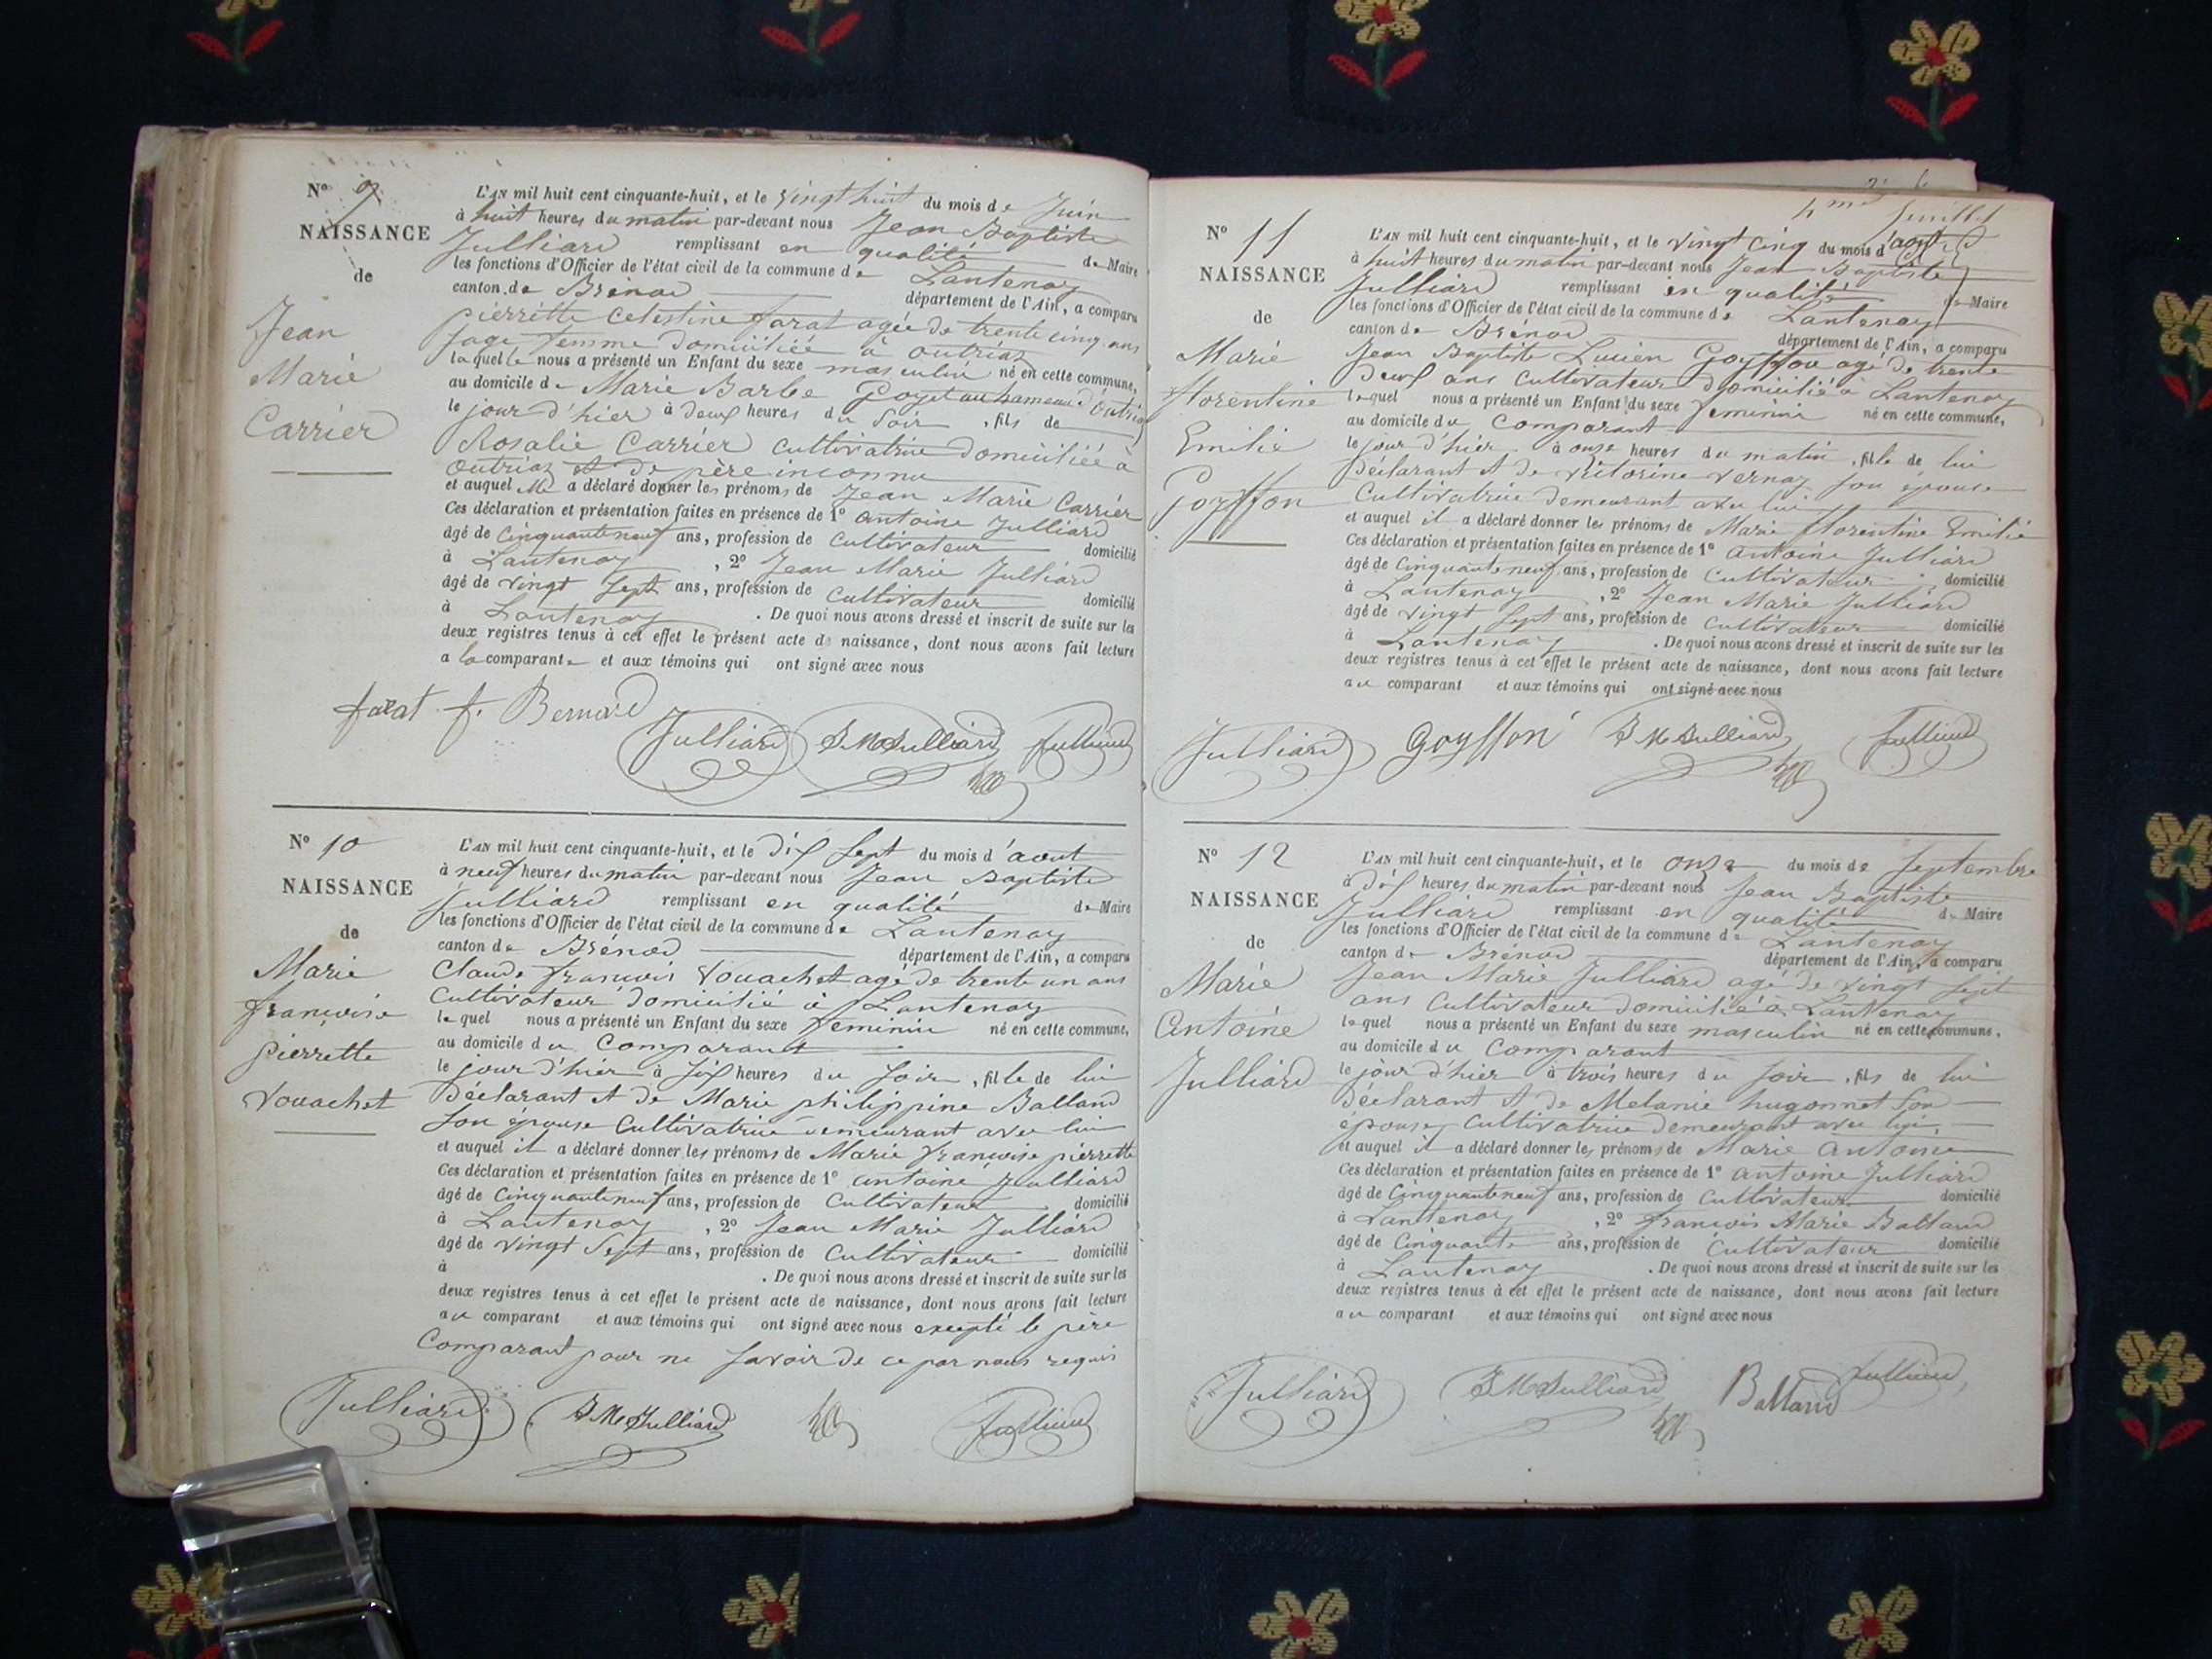 N° 9
NAISSANCE
de
Jean
Marie
Carrier
L'AN mil huit cent cinquante-huit, et le vingt huit du mois de Juin
à huit heures du matin par-devant nous Jean Baptiste
Julliard remplissant en qualité de Maire
les fonctions d'Officier de l'état civil de la commune de Lantenay
canton de Brénod département de l'Ain, a comparu
pierrette Celestine farat agée de trente cinq ans
sage femme domiciliée à outriaz
laquelle nous a présenté un Enfant du sexe masculin né en cette commune,
au domicile de Marie Barbe Goyet au hameau d'outriaz
le jour d'hier à deux heures du soir , fils de
Rosalie Carrier cultivatrice domiciliée à
outriaz et de père inconnu
et auquel elle a déclaré donner les prénoms de Jean Marie Carrier
Ces déclaration et présentation faites en présence de 1° antoine Julliard
âgé de cinquante neuf ans, profession de cultivateur domicilié
à Lantenay , 2° Jean Marie Julliard
âgé de vingt sept ans, profession de cultivateur domicilié
à Lantenay . De quoi nous avons dressé et inscrit de suite sur les
deux registres tenus à cet effet le présent acte de naissance, dont nous avons fait lecture
a la comparante et aux témoins qui ont signé avec nous
farat f. Bernard
Julliard J M Julliard Julliard
N° 10
NAISSANCE
de
Marie
françoise
pierrette
Vouachet
L'AN mil huit cent cinquante-huit, et le dix sept du mois d'aout
à neuf heures du matin par-devant nous Jean Baptiste
Julliard remplissant en qualité de Maire
les fonctions d'Officier de l'état civil de la commune de Lantenay
canton de Brénod département de l'Ain, a comparu
Claude françois Vouachet agé de trente un ans
cultivateur domicilié à Lantenay
lequel nous a présenté un Enfant du sexe feminin né en cette commune,
au domicile du Comparant
le jour d'hier à six heures du soir , fille de lui
déclarant et de Marie philippine Balland
son épouse cultivatrice demeurant avec lui
et auquel il a déclaré donner les prénoms de Marie françoise pierrette
Ces déclaration et présentation faites en présence de 1° antoine Julliard
âgé de cinquante neuf ans, profession de cultivateur domicilié
à Lantenay , 2° Jean Marie Julliard
âgé de vingt sept ans, profession de cultivateur domicilié
à . De quoi nous avons dressé et inscrit de suite sur les
deux registres tenus à cet effet le présent acte de naissance, dont nous avons fait lecture
au comparant et aux témoins qui ont signé avec nous excepté le père
Comparant pour ne savoir de ce par nous requis
Julliard J M Julliard Julliard
4me feuillet
N° 11
NAISSANCE
de
Marie
florentine
Emilie
Goyffon
L'AN mil huit cent cinquante-huit, et le vingt cinq du mois d'août
à huit heures du matin par-devant nous Jean Baptiste
Julliard remplissant en qualité de Maire
les fonctions d'Officier de l'état civil de la commune de Lantenay
canton de Brénod département de l'Ain, a comparu
Jean Baptiste Lucien Goyffon agé de trente
deux ans cultivateur domicilié à Lantenay
lequel nous a présenté un Enfant du sexe feminin né en cette commune,
au domicile du Comparant
le jour d'hier à onze heures du matin , fille de lui
déclarant et de Victorine Vernay son épouse
cultivatrice demeurant avec lui
et auquel il a déclaré donner les prénoms de Marie florentine Emilie
Ces déclaration et présentation faites en présence de 1° antoine Julliard
âgé de cinquante neuf ans, profession de cultivateur domicilié
à Lantenay , 2° Jean Marie Julliard
âgé de vingt sept ans, profession de cultivateur domicilié
à Lantenay . De quoi nous avons dressé et inscrit de suite sur les
deux registres tenus à cet effet le présent acte de naissance, dont nous avons fait lecture
au comparant et aux témoins qui ont signé avec nous
Julliard Goyffon J M Julliard Julliard
N° 12
NAISSANCE
de
Marie
antoine
Julliard
L'AN mil huit cent cinquante-huit, et le onze du mois de septembre
à dix heures du matin par-devant nous Jean Baptiste
Julliard remplissant en qualité de Maire
les fonctions d'Officier de l'état civil de la commune de Lantenay
canton de Brénod département de l'Ain, a comparu
Jean Marie Julliard agé de vingt sept
ans cultivateur domicilié à Lantenay
lequel nous a présenté un Enfant du sexe masculin né en cette commune,
au domicile du Comparant
le jour d'hier à trois heures du soir , fils de lui
déclarant et de Melanie hugonnet son
épouse, cultivatrice demeurant avec lui,
et auquel il a déclaré donner les prénoms de Marie antoine
Ces déclaration et présentation faites en présence de 1° antoine Julliard
âgé de cinquante neuf ans, profession de cultivateur domicilié
à Lantenay , 2° françois Marie Balland
âgé de cinquante ans, profession de cultivateur domicilié
à Lantenay . De quoi nous avons dressé et inscrit de suite sur les
deux registres tenus à cet effet le présent acte de naissance, dont nous avons fait lecture
au comparant et aux témoins qui ont signé avec nous
Julliard J M Julliard Balland Julliard